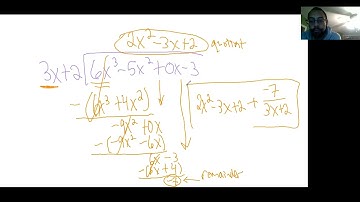 2x²-3x+2 quotient
3x+2 6x³-5x²+0x-3
-(6x³+4x²)
-9x²+0x
-(-9x²-6x)
6x-3
-(6x+4)
-7 remainder
2x²-3x+2 + -7/3x+2